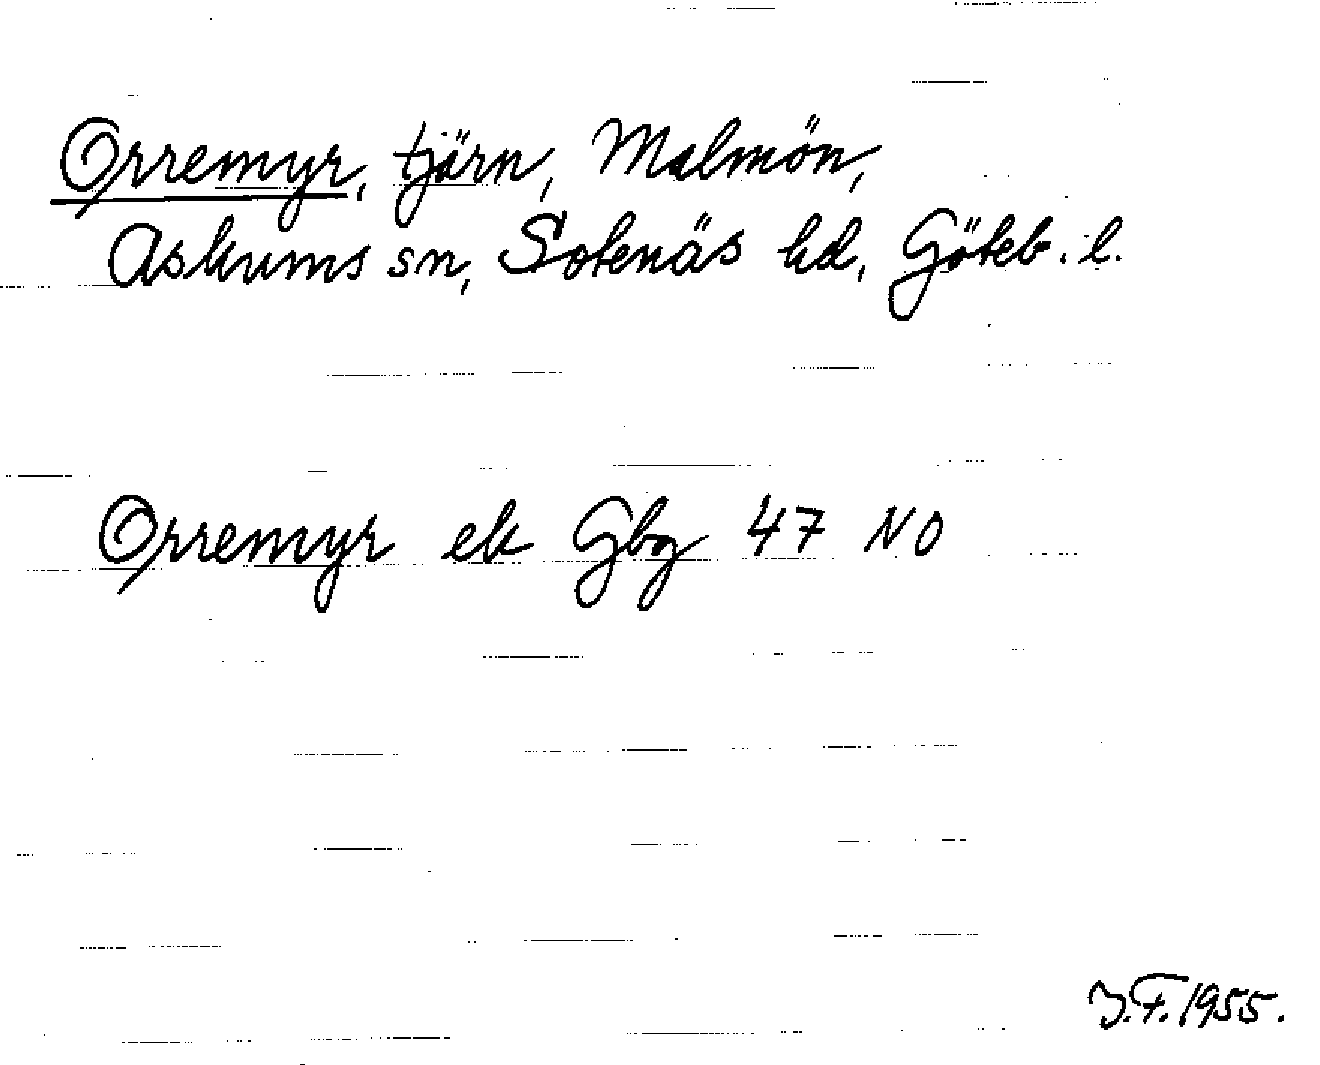 Orremyr, tjärn, Malmön,
Askums sn, Sotenäs hd, Göteb. l.
Orremyr ek Gbg 47 NO
J.F. 1955.